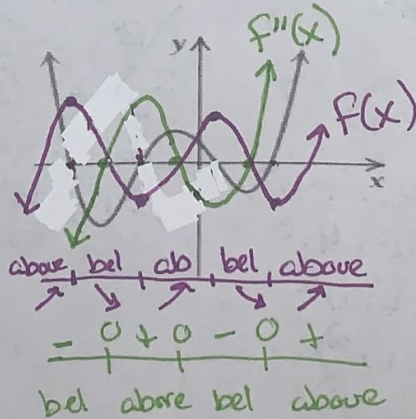 f''(x)
y
f(x)
x
above bel ab bel above
- 0 + 0 - 0 +
bel above bel above